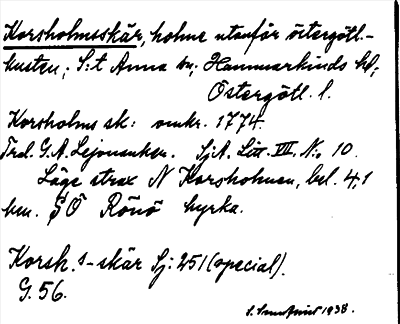 Korsholmsskär, holme utanför östergötl.-
kusten; S:t Anna sn, Hammarkinds hd,
Östergötl. l.
Korsholms sk: omkr. 1774.
Trol. G.A. Lejonanker. SjA. Litt. III. No 10.
Läge strax N Korsholmen, bel. 4,1
km. SÖ Rönö kyrka.
Korsh.s-skär Sj: 251 (special).
G. 56.
1938.